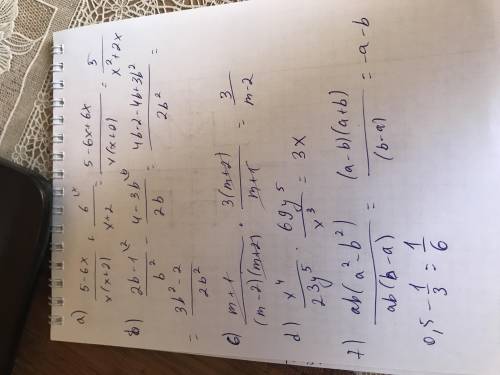 а) (5-6x)/(x(x+2)) + 6^{\x}/(x+2) = (5-6x+6x)/(x(x+2)) = 5/(x²+2x)
b) (2b-1^{\2})/b² - (4-3b^{\b})/2b = (4b-2-4b+3b²)/2b² =
= (3b²-2)/2b²
б) (m+1)/((m-2)(m+2)) · 3(m+2)/(m+1) = 3/(m-2)
d) x⁴/23y⁵ · 69y⁵/x³ = 3x
7) ab(a²-b²)/ab(b-a) = (a-b)(a+b)/(b-a) = -a-b
0,5 - 1/3 = 1/6